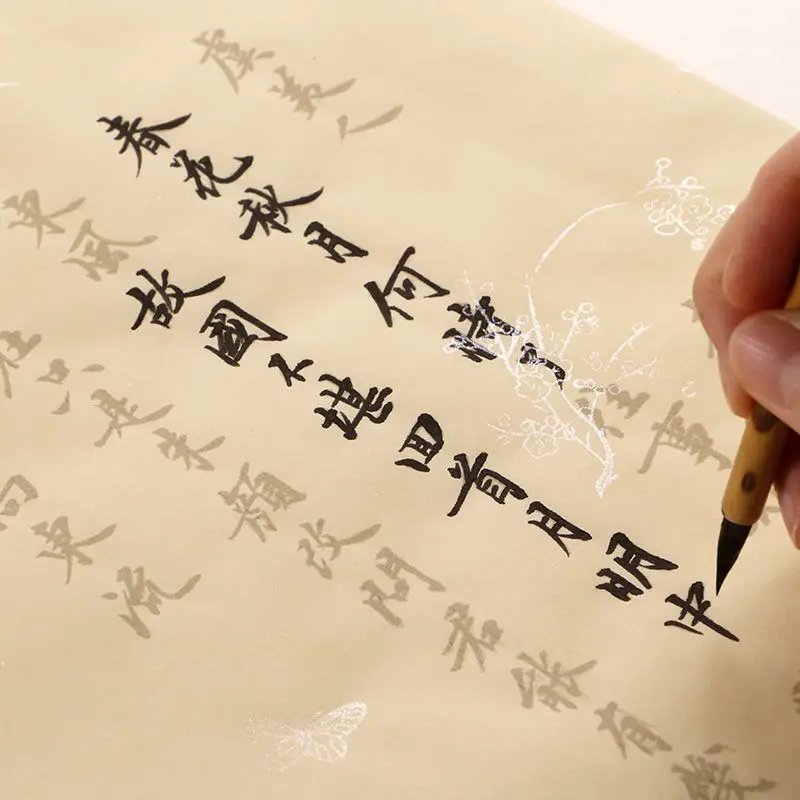 虞美人
春花秋月何時了往事
東風故國不堪回首月明中
在只是朱顏改問君能有幾
向東流